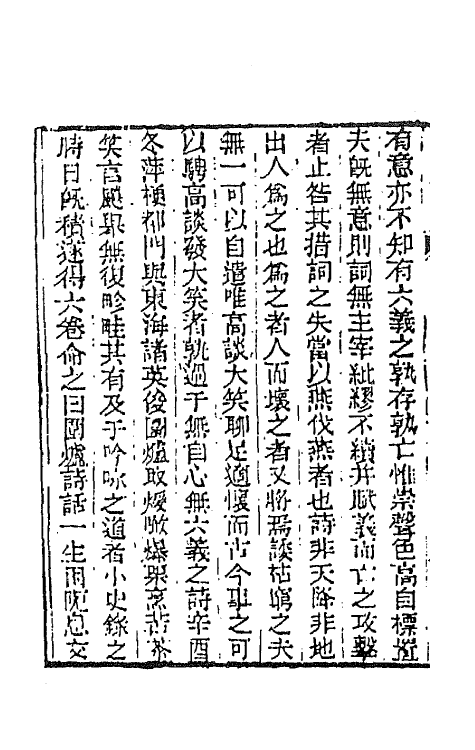 有意亦不知有六義之孰存孰亡惟崇聲色高自標置
夫旣無意則詞無主宰紕繆不續并賦義而亡之攻擊
者止咎其措詞之失當以燕伐燕者也詩非天降非地
出人爲之也爲之者人而壞之者又將焉諉枯窮之夫
無一可以自遣唯高談大笑聊足適懷而古今事之可
以騁高談發大笑者孰過于無自心無六義之詩辛酉
冬萍梗都門與東海諸英俊圍爐取煖啖爆栗烹苦茶
笑言颷舉無復畛畦其有及于吟咏之道者小史錄之
時日旣積遂得六卷命之曰圍爐詩話一生困阨息交